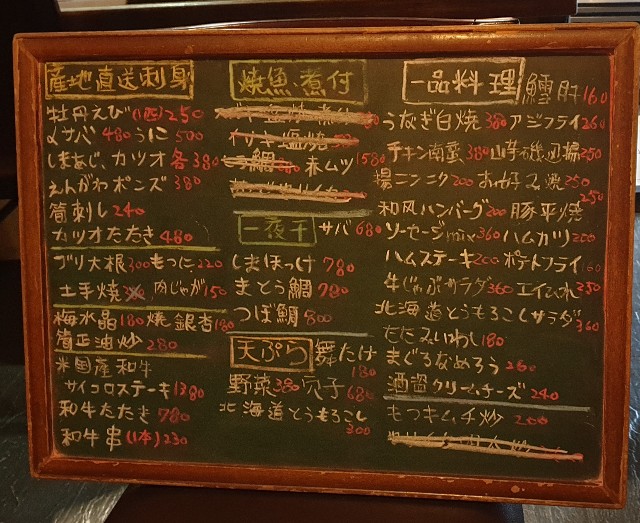 産地直送刺身
牡丹えび(1匹)250
〆サバ 480 うに 500
しまあじ、カツオ 各380
えんがわポンズ 380
筍刺し 240
カツオたたき 480
ブリ大根 300 もつに 220
土手焼 肉じゃが 150
梅水晶 180 焼銀杏 180
筍正油炒 280
米国産和牛
サイコロステーキ 1380
和牛たたき 780
和牛串 (1本) 230
焼魚煮付
塩焼
鯛 赤ムツ 1580
一夜干 サバ 680
しまほっけ 780
まとう鯛 780
つぼ鯛 800
天ぷら 舞たけ
180
野菜 380 穴子 680
北海道とうもろこし
300
一品料理 鱈肝 160
うなぎ白焼 380 アジフライ 260
チキン南蛮 380 山芋磯辺揚 250
揚ニンニク 200 お好み焼 250
和風ハンバーグ 200 豚平焼 250
ソーセージmix 360 ハムカツ 200
ハムステーキ 200 ポテトフライ 160
牛じゃぶサラダ 360 エイひれ 350
北海道とうもろこしサラダ 360
たたみいわし 180
まぐろなめろう 260
酒盗クリームチーズ 240
もつキムチ炒 200